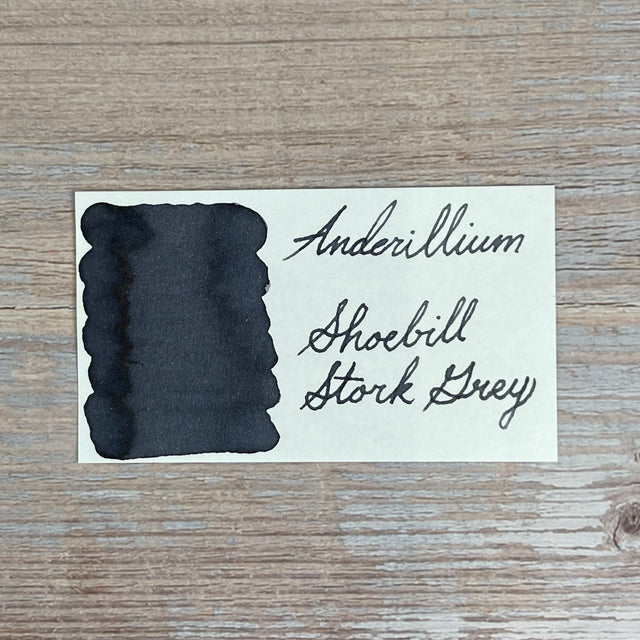 Anderillium
Shoebill
Stork Grey